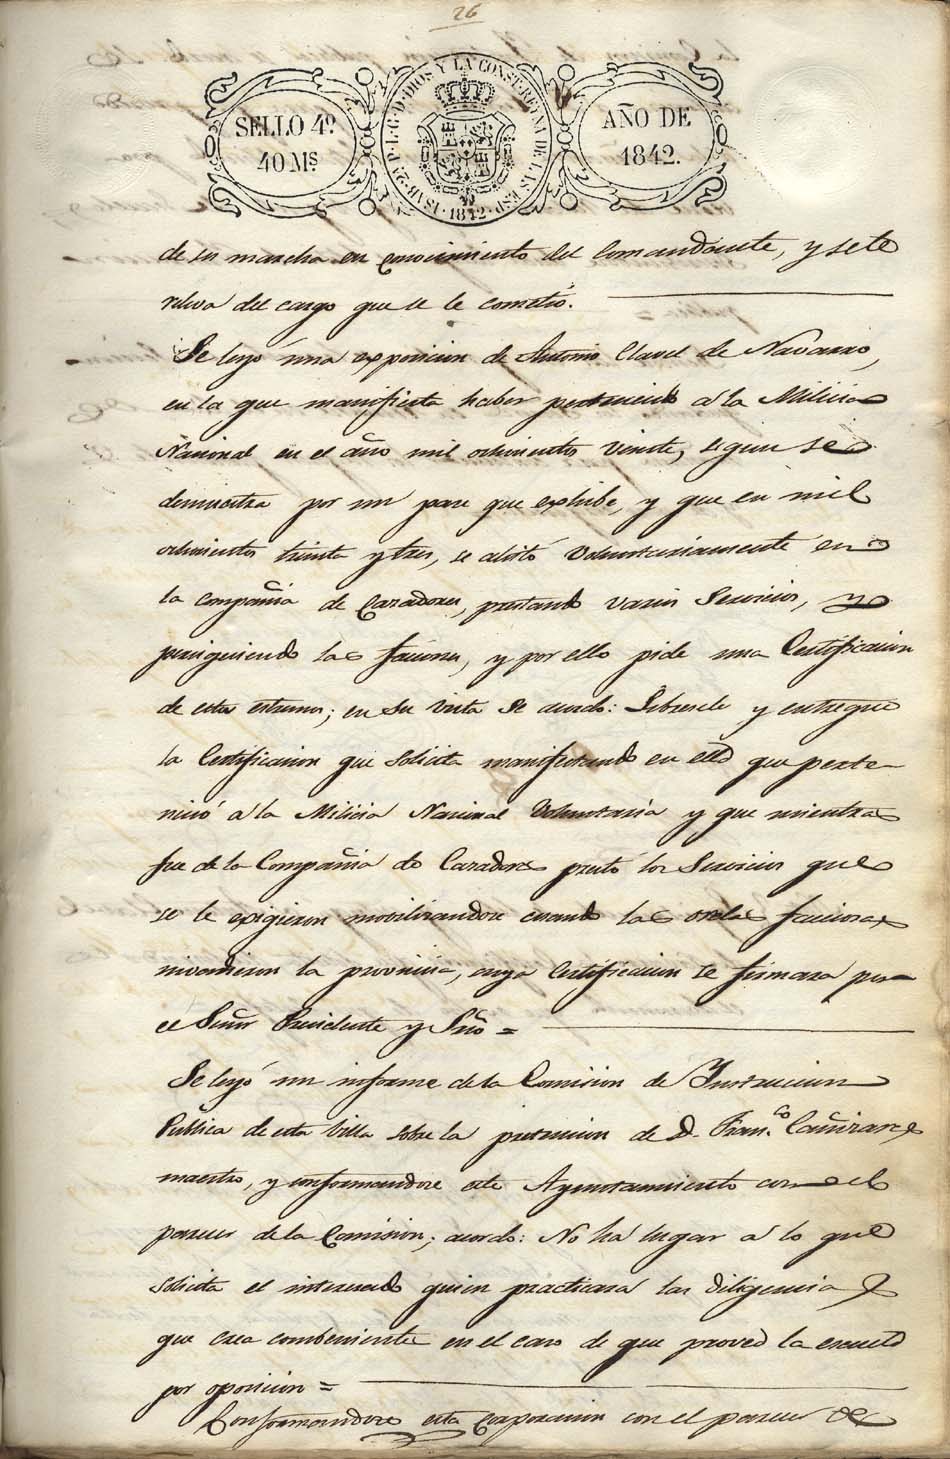 26
SELLO 4º.
40 Ms.
ISAB. 2ª P. L. G. D. DIOS Y LA CONST. REYNA DE LAS ESP. 1842
AÑO DE
1842.
de su marcha en conocimiento del Comandante, y se le
releva del cargo que se le cometió.
Se leyó una exposicion de Antonio Clavel de Navarro,
en la que manifiesta haber pertenecido á la Milicia
Nacional en el año mil ochocientos veinte, segun se
demuestra por un pase que exhibe, y que en mil
ochocientos treinta y tres, se alistó voluntariamente en
la Compañia de Cazadores, prestando varios Servicios, y
persiguiendo las facciones, y por ello pide una Certificacion
de estos estremos; en su vista se acordo: Libresele y entregue
la Certificacion que solicita manifestando en ella que perte-
neció á la Milicia Nacional Voluntaria y que mientras
fue de la Compañia de Cazadores prestó los Servicios que
se le exigieron movilizandose cuando las ordas facciosas
invadieron la provincia, cuya Certificacion se firmara por
el Señor Presidente y Srio =
Se leyó un informe de la Comision de Instruccion
Publica de esta Villa sobre la pretencion de D. Fran.co Cañizares
maestro, y conformandose este Ayuntamiento con el
parecer de la Comision; acordo: No ha lugar á lo que
solicita el interesado quien practicara las diligencias
que crea combenientes en el caso de que provea la escuela
por oposicion =
Conformandose esta Corporacion con el parecer de